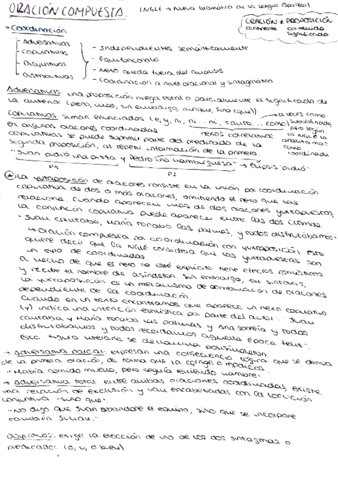 ORACIÓN COMPUESTA. (NGLE → Nueva Gramática de la Lengua Española)
ORACIÓN ≠ PROPOSICIÓN
contiene contenido significado
• Coordinación
- Adversativas
- Copulativas
- Disyuntivas
- Distributivas
- Independientes semánticamente
- Equifuncionales
- Nexo queda fuera del análisis
- Coordinación a nivel oracional y sintagmático
Adversativas: una proposición niega total o parcialmente el significado de
la anterior (pero, mas, sin embargo, aunque, sino (que))
Copulativas: suman enunciados (e, y, ni, ni... ni,
en algunas oraciones coordinadas
copulativas se puede suprimir parte del predicado de la
segunda proposición, al repetir información de la primera
- Juan pidió una pizza y Pedro una hamburguesa → Elipsis "pidió"
P1 P2
La yuxtaposición de oraciones consiste en la unión por coordinación
copulativas de dos o más oraciones, omitiendo el nexo que las
relaciona. Cuando aparecen más de dos oraciones yuxtapuestas,
la conjunción copulativa puede aparecer entre las dos últimas
- Juan cantaba, María tocaba las palmas, y todos disfrutábamos
→ Oración compuesta por coordinación con yuxtaposición. Esto
quiere decir que la NGLE considera que las yuxtapuestas son
un tipo de coordinadas
El hecho de que el nexo no esté explícito tiene efectos estilísticos
y recibe el nombre de asíndeton. Sin embargo, en sintaxis,
la yuxtaposición es un mecanismo de combinación de oraciones
dependiente de la coordinación.
Cuando en un texto encontramos que aparece un nexo copulativo
(y) indica una intención estilística por parte del autor. "Juan
cantaba y María tocaba las palmas y Ana sonreía y todos
disfrutábamos y todos recordamos aquella época feliz".
Esta figura literaria se denomina polisíndeton
→ Adversativa parcial: expresan una consecuencia lógica que se deriva
de la primera oración, de forma que la
- Había comido mucho, pero seguía teniendo hambre.
→ Adversativa total: entre ambas oraciones coordinadas, existe
una relación de exclusión y van encabezadas con la locución
conjuntiva "sino que".
- No digo que Juan abandone el equipo, sino que se incorpore
también Julián.
Disyuntivas: exige la elección de uno de los dos sintagmas o
(o, u, o bien)